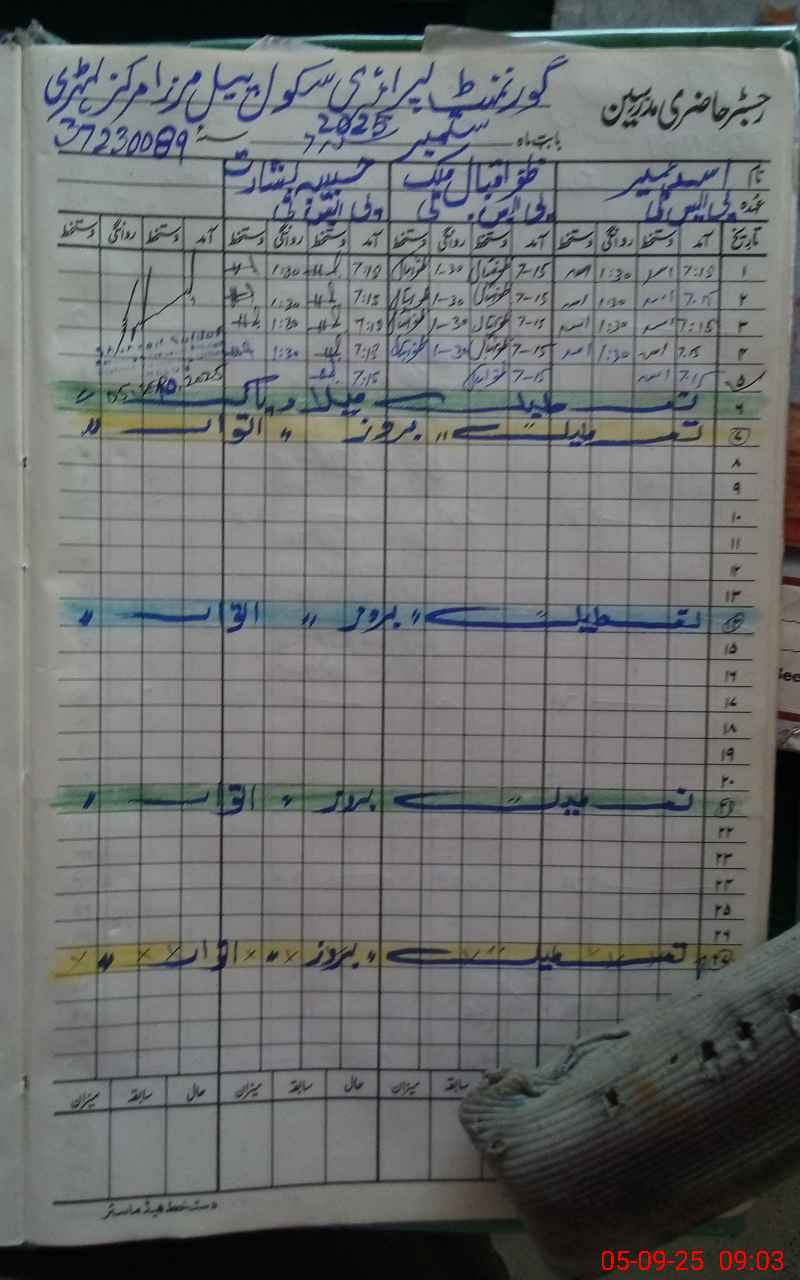 رجسٹر حاضری مدرسین
گورنمنٹ پرائمری سکول پیل مرزا مرکز لہڑی
بابت ماہ ستمبر 2025ء سنہ 37230089
نام اسد ظفر اقبال ملک حسیبہ بشارت
عہدہ پی ایس ٹی پی ایس ٹی پی ایس ٹی
تاریخ آمد دستخط روانگی دستخط آمد دستخط روانگی دستخط آمد دستخط روانگی دستخط آمد دستخط روانگی دستخط
۱ 7:15 اسد 1:30 اسد 7-15 ظفر اقبال 1-30 ظفر اقبال 7:15 1:30
۲ 7:15 اسد 1:30 اسد 7-15 ظفر اقبال 1-30 ظفر اقبال 7:15 1:30
۳ 7:15 اسد 1:30 اسد 7-15 ظفر اقبال 1-30 ظفر اقبال 7:15 1:30
۴ 7:15 اسد 1:30 اسد 7-15 ظفر اقبال 1-30 ظفر اقبال 7:15 1:30
۵ 7:15 اسد 7-15 ظفر اقبال 7:15 05 SEP 2025
۶ تعطیل میلاد پاک "
۷ تعطیل " بروز " اتوار "
۸
۹
۱۰
۱۱
۱۲
۱۳
۱۴ تعطیل " بروز " اتوار "
۱۵
۱۶
۱۷
۱۸
۱۹
۲۰
۲۱ تعطیل " بروز " اتوار "
۲۲
۲۳
۲۴
۲۵
۲۶
تعطیل " بروز " اتوار "
سابقہ میزان حال سابقہ میزان حال سابقہ میزان
دستخط ہیڈ ماسٹر
05-09-25 09:03